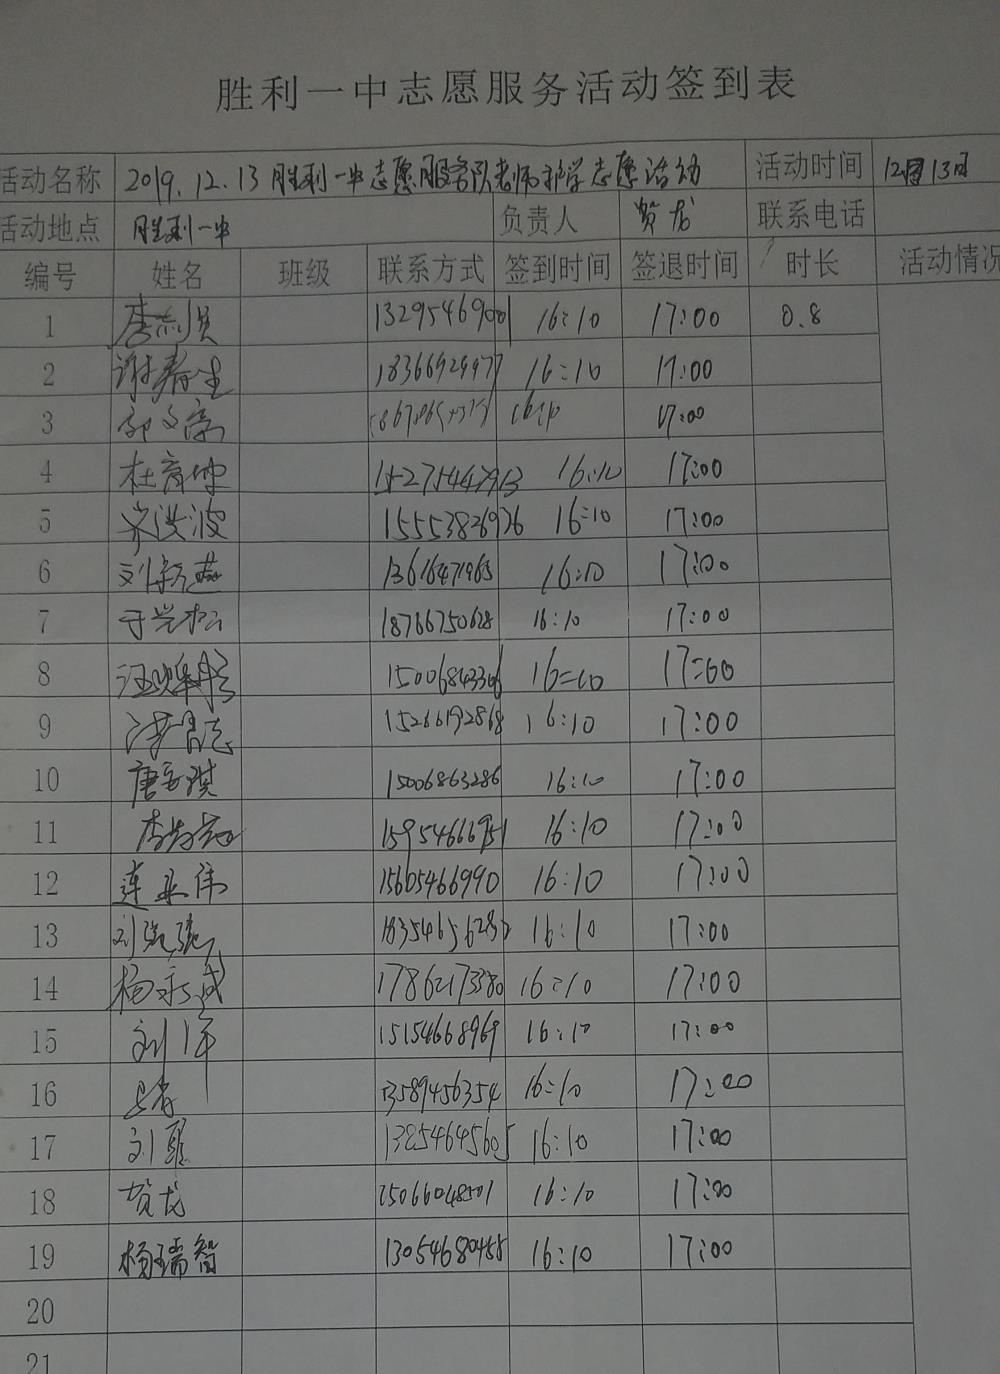 胜利一中志愿服务活动签到表
活动名称 2019.12.13胜利一中志愿服务队老师护学志愿活动 活动时间 12月13日
活动地点 胜利一中 负责人 贺龙 联系电话
编号 姓名 班级 联系方式 签到时间 签退时间 时长 活动情况
1 李志贤 13295469001 16:10 17:00 0.8
2 谢春生 18366929977 16:10 17:00
3 17:00
4 杜育坤 15275447913 16:10 17:00
5 宋洪波 15553826926 16:10 17:00
6 刘新燕 13616471963 16:10 17:00
7 于兴松 18766750628 16:10 17:00
8 15006843306 16:10 17:00
9 15266192868 16:10 17:00
10 15006863286 16:10 17:00
11 15954666951 16:10 17:00
12 15605466990 16:10 17:00
13 18354656283 16:10 17:00
14 杨永成 17862173380 16:10 17:00
15 刘军 15154668969 16:10 17:00
16 13589456354 16:10 17:00
17 13854645605 16:10 17:00
18 贺龙 15066048501 16:10 17:00
19 杨瑞智 13054680455 16:10 17:00
20
21